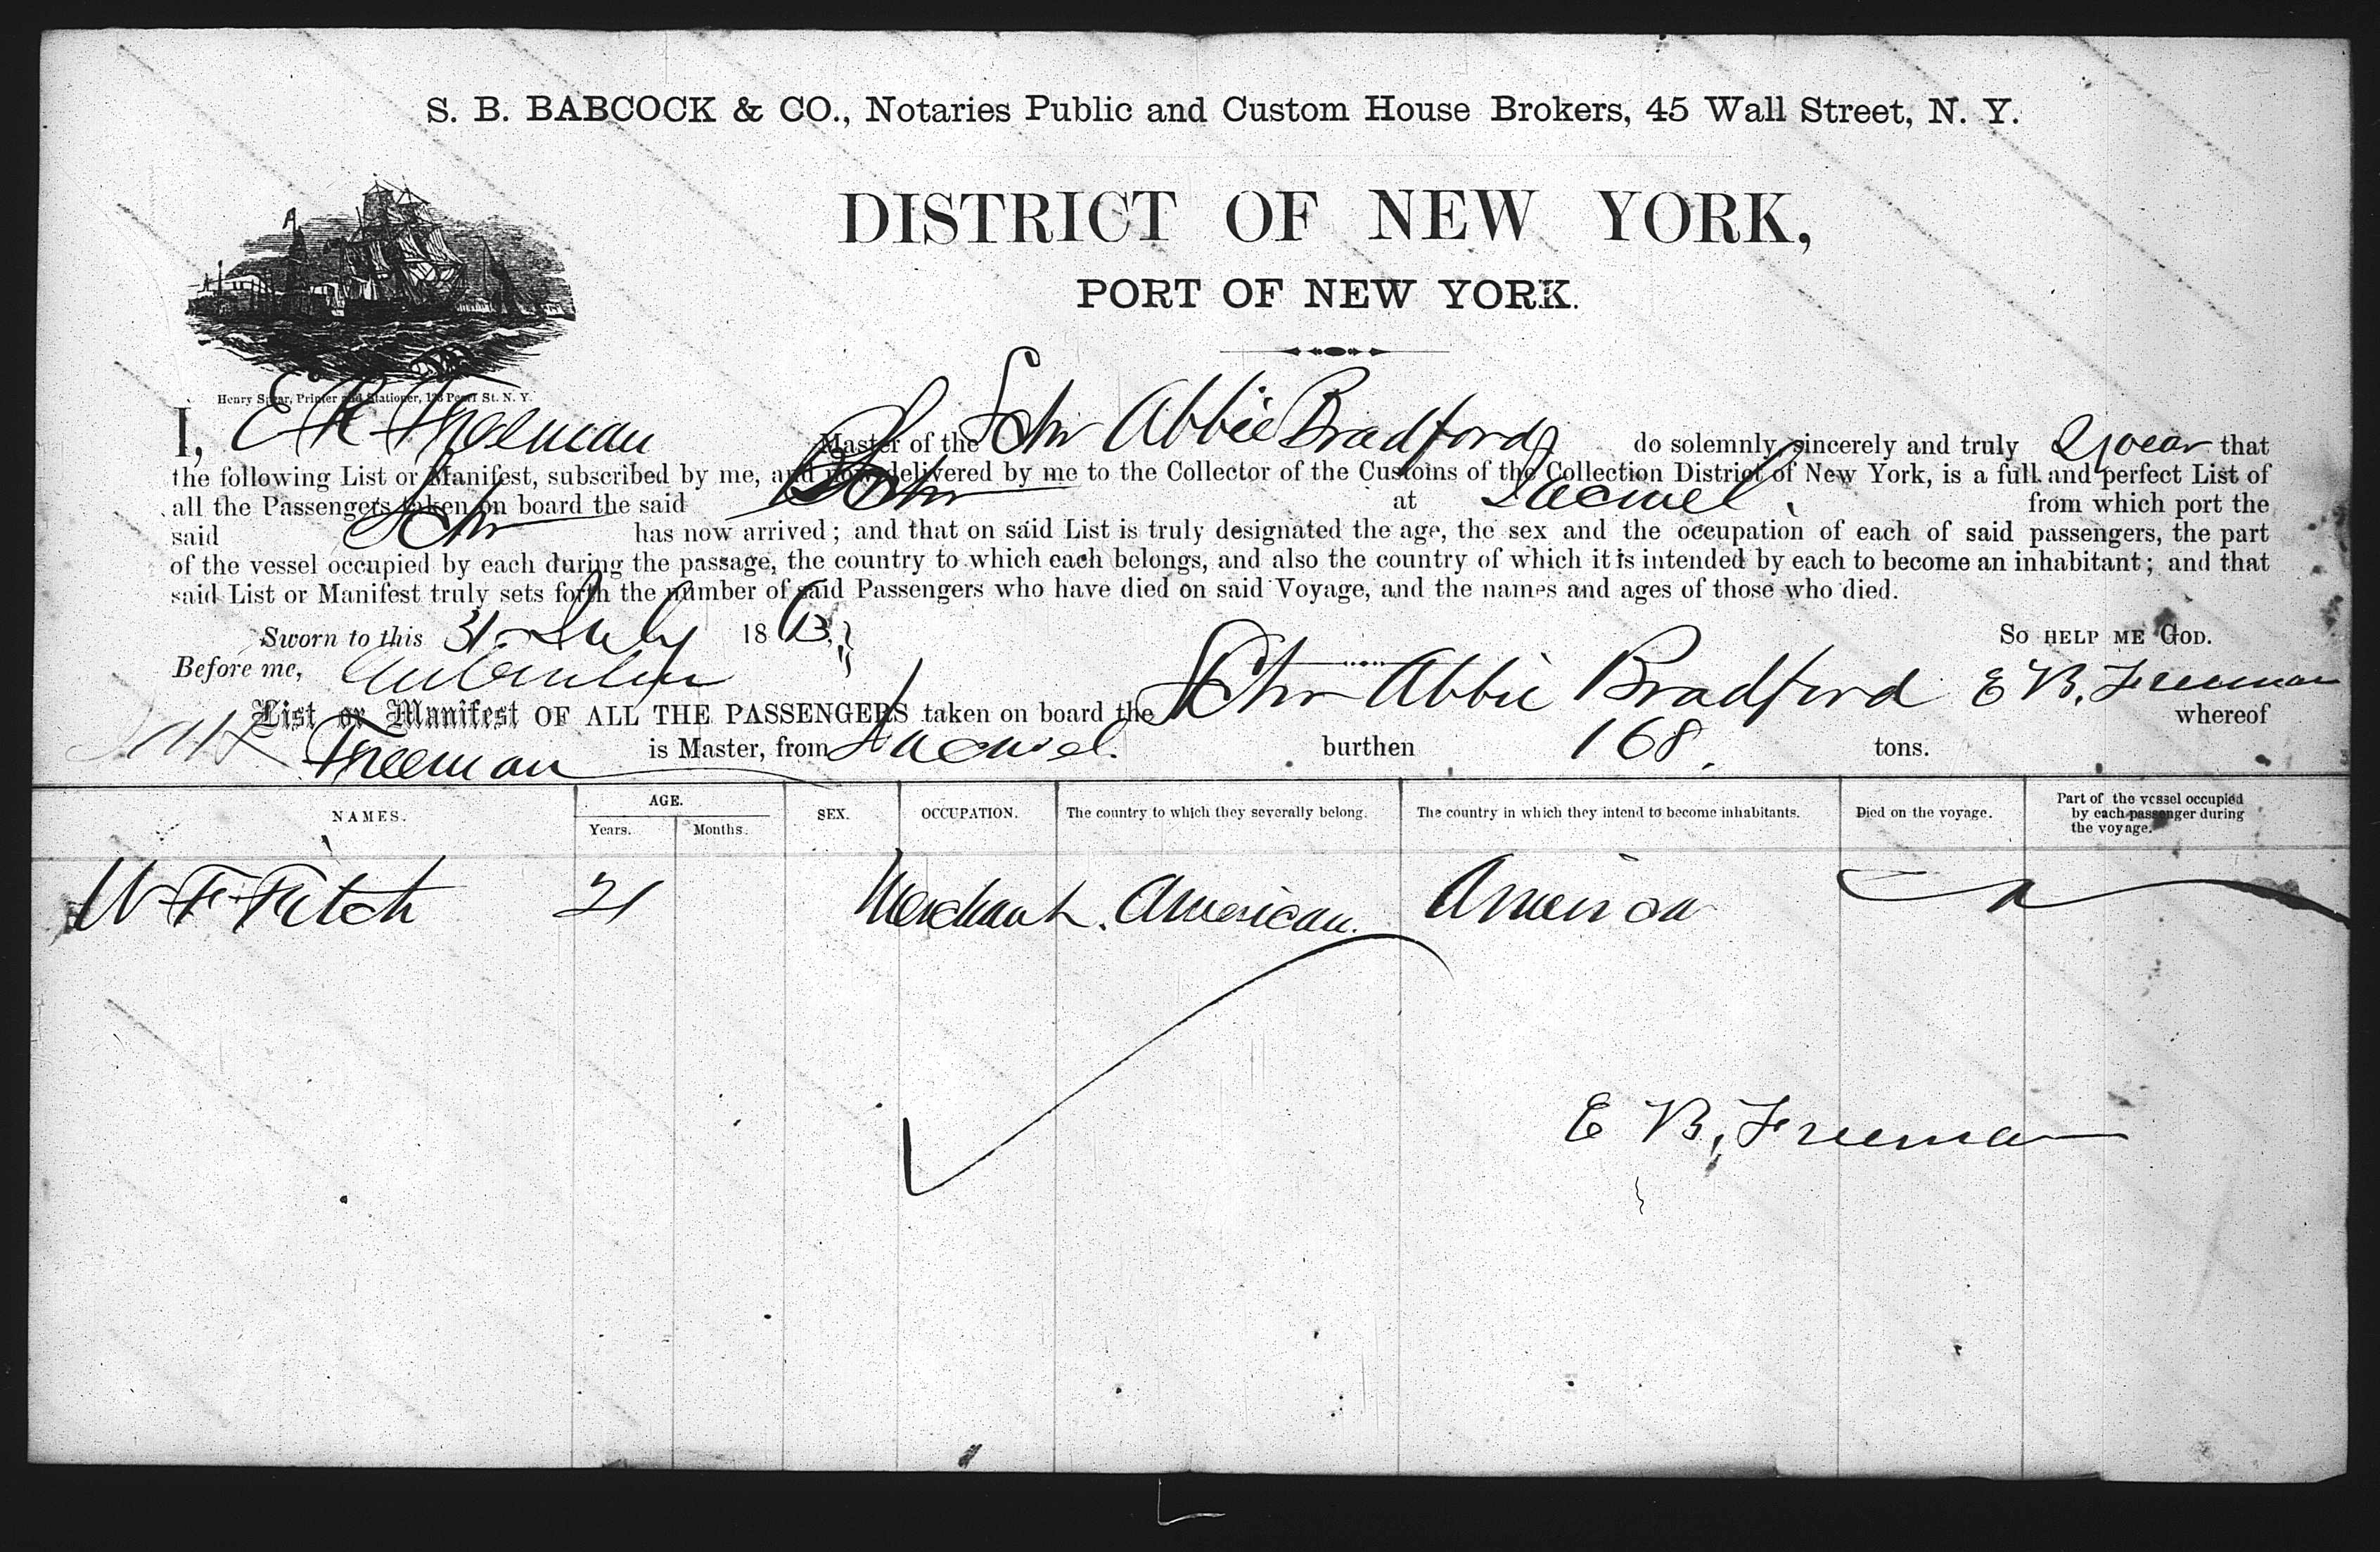 S. B. BABCOCK & CO., Notaries Public and Custom House Brokers, 45 Wall Street, N. Y.
DISTRICT OF NEW YORK,
PORT OF NEW YORK.
Henry Spear, Printer and Stationer, 133 Pearl St. N. Y.
I, E R Freeman Master of the Schr Abbie Bradford do solemnly, sincerely and truly Swear that
the following List or Manifest, subscribed by me, and now delivered by me to the Collector of the Customs of the Collection District of New York, is a full and perfect List of
all the Passengers taken on board the said Schr at Jacmel from which port the
said Schr has now arrived; and that on said List is truly designated the age, the sex and the occupation of each of said passengers, the part
of the vessel occupied by each during the passage, the country to which each belongs, and also the country of which it is intended by each to become an inhabitant; and that
said List or Manifest truly sets forth the number of said Passengers who have died on said Voyage, and the names and ages of those who died.
Sworn to this 31 July 1863, So HELP ME GOD.
Before me, E B, Freeman
List or Manifest OF ALL THE PASSENGERS taken on board the Schr Abbie Bradford whereof
Freeman is Master, from Jacmel. burthen 168. tons.
NAMES. AGE. Years. Months. SEX. OCCUPATION. The country to which they severally belong. The country in which they intend to become inhabitants. Died on the voyage. Part of the vessel occupied by each passenger during the voyage.
W F Fitch 21 Merchant. American. America
E B, Freeman